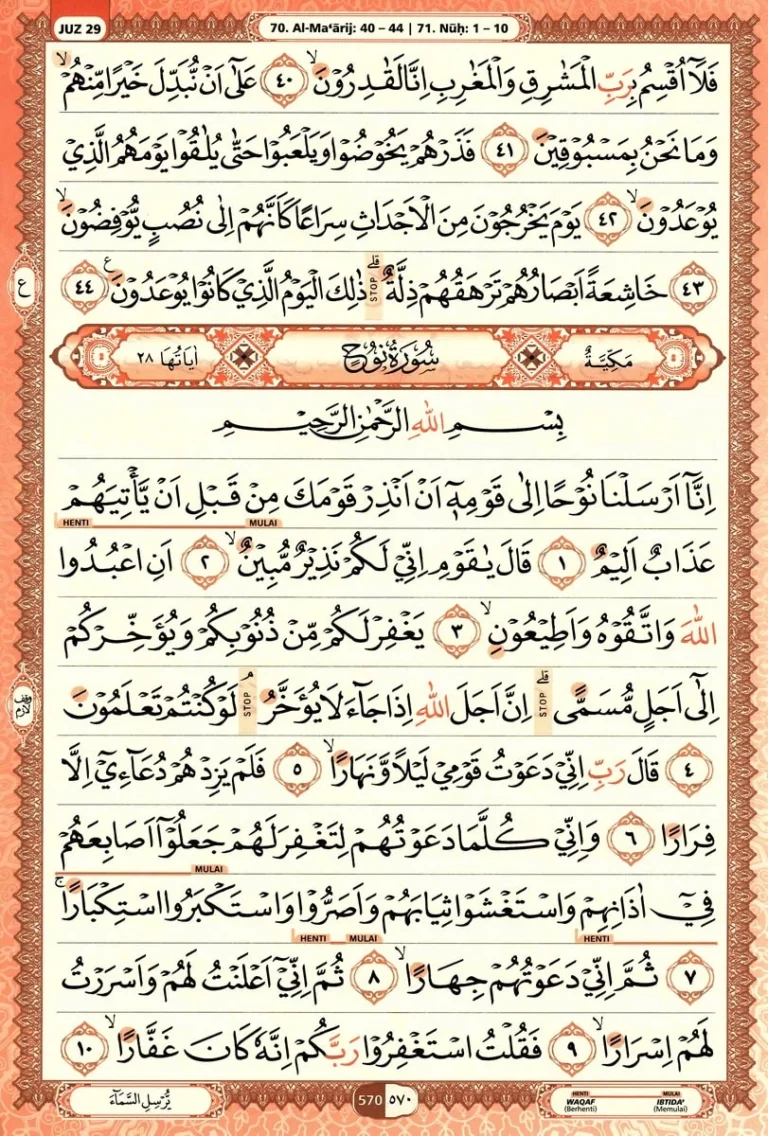 JUZ 29
70. Al-Ma‘ārij: 40 – 44 | 71. Nūḥ: 1 – 10
فَلَآ اُقْسِمُ بِرَبِّ الْمَشٰرِقِ وَالْمَغٰرِبِ اِنَّا لَقٰدِرُوْنَۙ ٤٠ عَلٰٓى اَنْ نُّبَدِّلَ خَيْرًا مِّنْهُمْۙ
وَمَا نَحْنُ بِمَسْبُوْقِيْنَ ٤١ فَذَرْهُمْ يَخُوْضُوْا وَيَلْعَبُوْا حَتّٰى يُلٰقُوْا يَوْمَهُمُ الَّذِيْ
يُوْعَدُوْنَۙ ٤٢ يَوْمَ يَخْرُجُوْنَ مِنَ الْاَجْدَاثِ سِرَاعًا كَاَنَّهُمْ اِلٰى نُصُبٍ يُّوْفِضُوْنَۙ
٤٣ خَاشِعَةً اَبْصَارُهُمْ تَرْهَقُهُمْ ذِلَّةٌ ۗ STOP ذٰلِكَ الْيَوْمُ الَّذِيْ كَانُوْا يُوْعَدُوْنَ ࣖ ٤٤
ع
مَكِّيَّةٌ سُوْرَةُ نُوْحٍ اٰيَاتُهَا ٢٨
بِسْمِ اللّٰهِ الرَّحْمٰنِ الرَّحِيْمِ
اِنَّآ اَرْسَلْنَا نُوْحًا اِلٰى قَوْمِهٖٓ اَنْ اَنْذِرْ قَوْمَكَ مِنْ قَبْلِ اَنْ يَّأْتِيَهُمْ
MULAI HENTI
عَذَابٌ اَلِيْمٌ ١ قَالَ يٰقَوْمِ اِنِّيْ لَكُمْ نَذِيْرٌ مُّبِيْنٌۙ ٢ اَنِ اعْبُدُوا
اللّٰهَ وَاتَّقُوْهُ وَاَطِيْعُوْنِۙ ٣ يَغْفِرْ لَكُمْ مِّنْ ذُنُوْبِكُمْ وَيُؤَخِّرْكُمْ
اِلٰٓى اَجَلٍ مُّسَمًّى ۗ STOP اِنَّ اَجَلَ اللّٰهِ اِذَا جَاۤءَ لَا يُؤَخَّرُ ۘ STOP لَوْ كُنْتُمْ تَعْلَمُوْنَ
وقف لازم
٤ قَالَ رَبِّ اِنِّيْ دَعَوْتُ قَوْمِيْ لَيْلًا وَّنَهَارًاۙ ٥ فَلَمْ يَزِدْهُمْ دُعَاۤءِيْٓ اِلَّا
فِرَارًا ٦ وَاِنِّيْ كُلَّمَا دَعَوْتُهُمْ لِتَغْفِرَ لَهُمْ جَعَلُوْٓا اَصَابِعَهُمْ
MULAI
فِيْٓ اٰذَانِهِمْ وَاسْتَغْشَوْا ثِيَابَهُمْ وَاَصَرُّوْا وَاسْتَكْبَرُوا اسْتِكْبَارًاۚ
HENTI MULAI HENTI
٧ ثُمَّ اِنِّيْ دَعَوْتُهُمْ جِهَارًاۙ ٨ ثُمَّ اِنِّيْٓ اَعْلَنْتُ لَهُمْ وَاَسْرَرْتُ
لَهُمْ اِسْرَارًاۙ ٩ فَقُلْتُ اسْتَغْفِرُوْا رَبَّكُمْ اِنَّهٗ كَانَ غَفَّارًاۙ ١٠
يُّرْسِلِ السَّمَاۤءَ
570 ٥٧٠
HENTI MULAI
WAQAF IBTIDA'
(Berhenti) (Memulai)